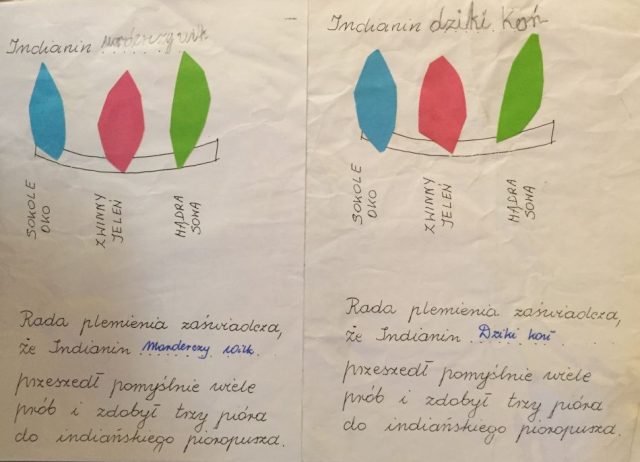 Indianin morderczy wilk
SOKOLE
OKO
ZWINNY
JELEŃ
MĄDRA
SOWA
Rada plemienia zaświadcza,
że Indianin Morderczy wilk
przeszedł pomyślnie wiele
prób i zdobył trzy pióra
do indiańskiego pióropusza.
Indianin dziki Koń
SOKOLE
OKO
ZWINNY
JELEŃ
MĄDRA
SOWA
Rada plemienia zaświadcza,
że Indianin Dziki koń
przeszedł pomyślnie wiele
prób i zdobył trzy pióra
do indiańskiego pióropusza.